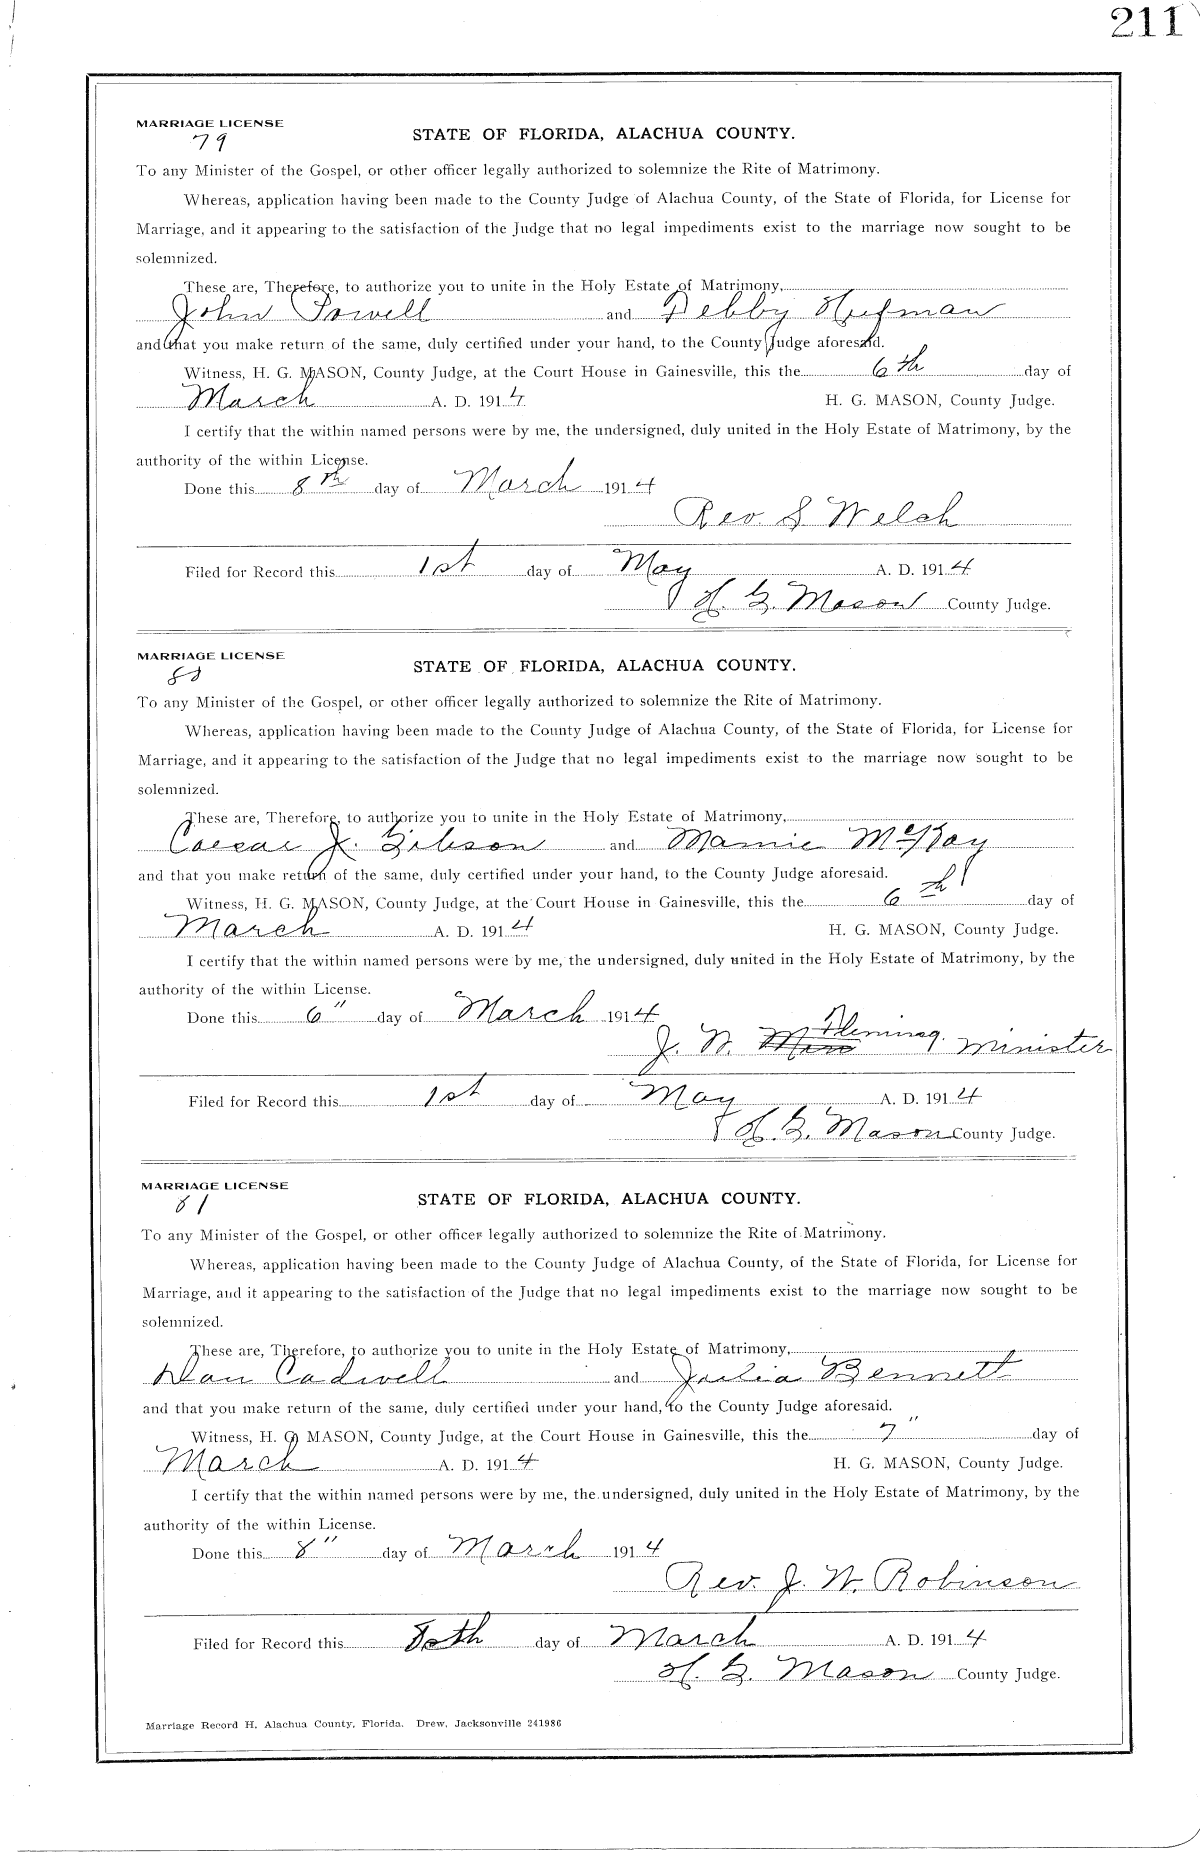 211
MARRIAGE LICENSE
79
STATE OF FLORIDA, ALACHUA COUNTY.
To any Minister of the Gospel, or other officer legally authorized to solemnize the Rite of Matrimony.
Whereas, application having been made to the County Judge of Alachua County, of the State of Florida, for License for
Marriage, and it appearing to the satisfaction of the Judge that no legal impediments exist to the marriage now sought to be
solemnized.
These are, Therefore, to authorize you to unite in the Holy Estate of Matrimony,
John Powell and Debby Hufman
and that you make return of the same, duly certified under your hand, to the County Judge aforesaid.
Witness, H. G. MASON, County Judge, at the Court House in Gainesville, this the 6th day of
March A. D. 1914 H. G. MASON, County Judge.
I certify that the within named persons were by me, the undersigned, duly united in the Holy Estate of Matrimony, by the
authority of the within License.
Done this 8th day of March 1914
Rev. S Welch
Filed for Record this 1st day of May A. D. 1914
H. G. Mason County Judge.
MARRIAGE LICENSE
80
STATE OF FLORIDA, ALACHUA COUNTY.
To any Minister of the Gospel, or other officer legally authorized to solemnize the Rite of Matrimony.
Whereas, application having been made to the County Judge of Alachua County, of the State of Florida, for License for
Marriage, and it appearing to the satisfaction of the Judge that no legal impediments exist to the marriage now sought to be
solemnized.
These are, Therefore, to authorize you to unite in the Holy Estate of Matrimony,
Caesar J. Gibson and Mamie McKay
and that you make return of the same, duly certified under your hand, to the County Judge aforesaid.
Witness, H. G. MASON, County Judge, at the Court House in Gainesville, this the 6th day of
March A. D. 1914 H. G. MASON, County Judge.
I certify that the within named persons were by me, the undersigned, duly united in the Holy Estate of Matrimony, by the
authority of the within License.
Done this 6" day of March 1914
J. W. Fleming. Minister
Filed for Record this 1st day of May A. D. 1914
H. G. Mason County Judge.
MARRIAGE LICENSE
81
STATE OF FLORIDA, ALACHUA COUNTY.
To any Minister of the Gospel, or other officer legally authorized to solemnize the Rite of Matrimony.
Whereas, application having been made to the County Judge of Alachua County, of the State of Florida, for License for
Marriage, and it appearing to the satisfaction of the Judge that no legal impediments exist to the marriage now sought to be
solemnized.
These are, Therefore, to authorize you to unite in the Holy Estate of Matrimony,
Dan Cadwell and Julia Bennett
and that you make return of the same, duly certified under your hand, to the County Judge aforesaid.
Witness, H. G MASON, County Judge, at the Court House in Gainesville, this the 7" day of
March A. D. 1914 H. G. MASON, County Judge.
I certify that the within named persons were by me, the undersigned, duly united in the Holy Estate of Matrimony, by the
authority of the within License.
Done this 8" day of March 1914
Rev. J. W. Robinson
Filed for Record this day of March A. D. 1914
H. G. Mason County Judge.
Marriage Record H, Alachua County, Florida. Drew, Jacksonville 241986